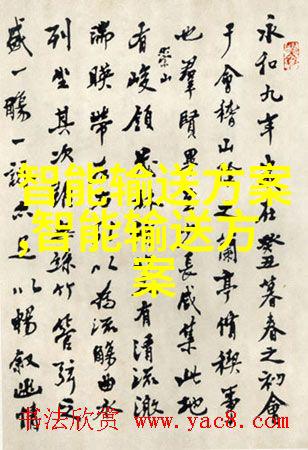 永和九年歲在癸丑暮春之初會
于會稽山陰之蘭亭脩禊事
也羣賢畢長咸集此地
有崇山峻領茂有清流激
湍暎帶左右以為流觴曲水
列坐其次雖無絲竹管弦之
盛一觴一詠亦足以暢敘幽情
智能输送方案
,智能输送方
案
书法欣赏 www.yac8.com